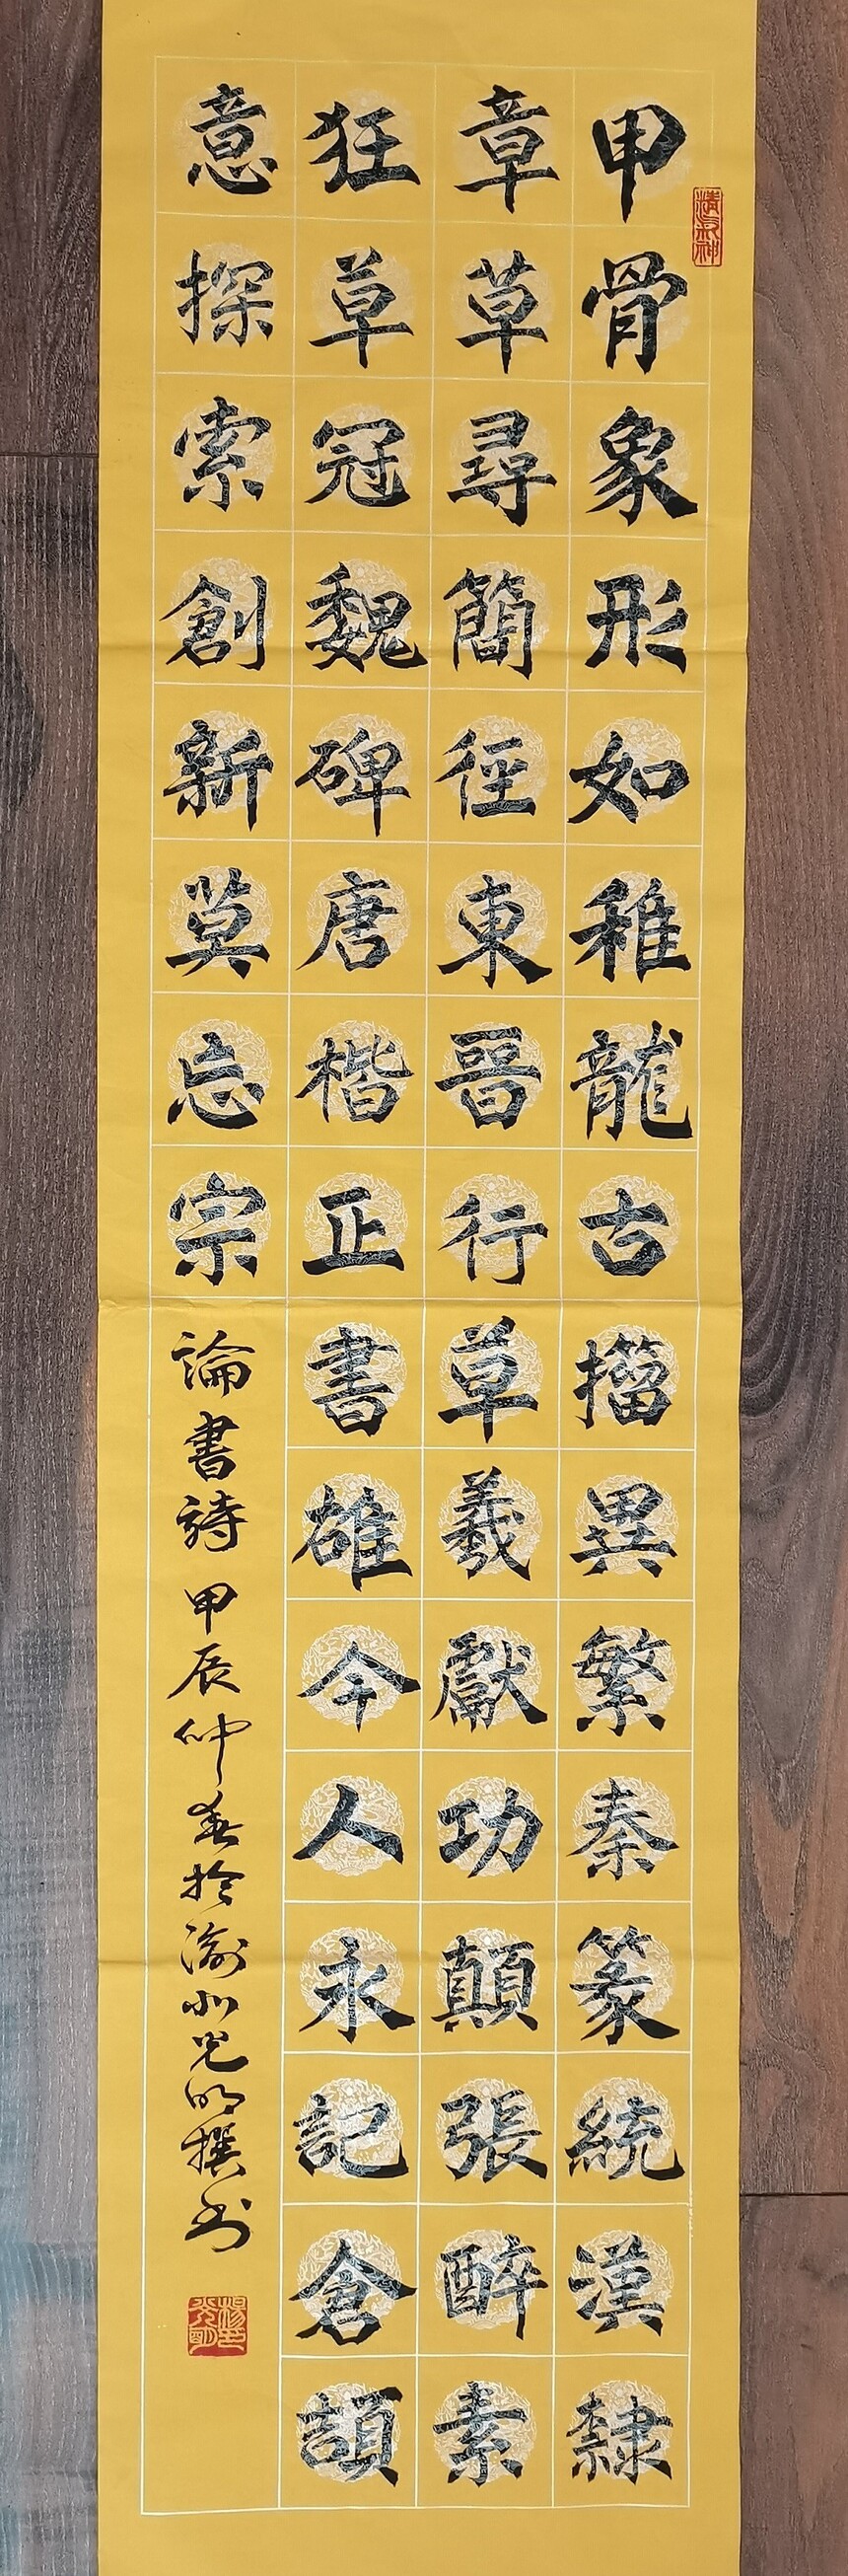 精氣神
甲骨象形如稚龍古籀異繁秦篆統漢隸
章草尋簡徑東晉行草羲獻功顛張醉素
狂草冠魏碑唐楷正書雄今人永記倉頡
意探索創新莫忘宗
論書詩甲辰仲春於渝北光明撰书